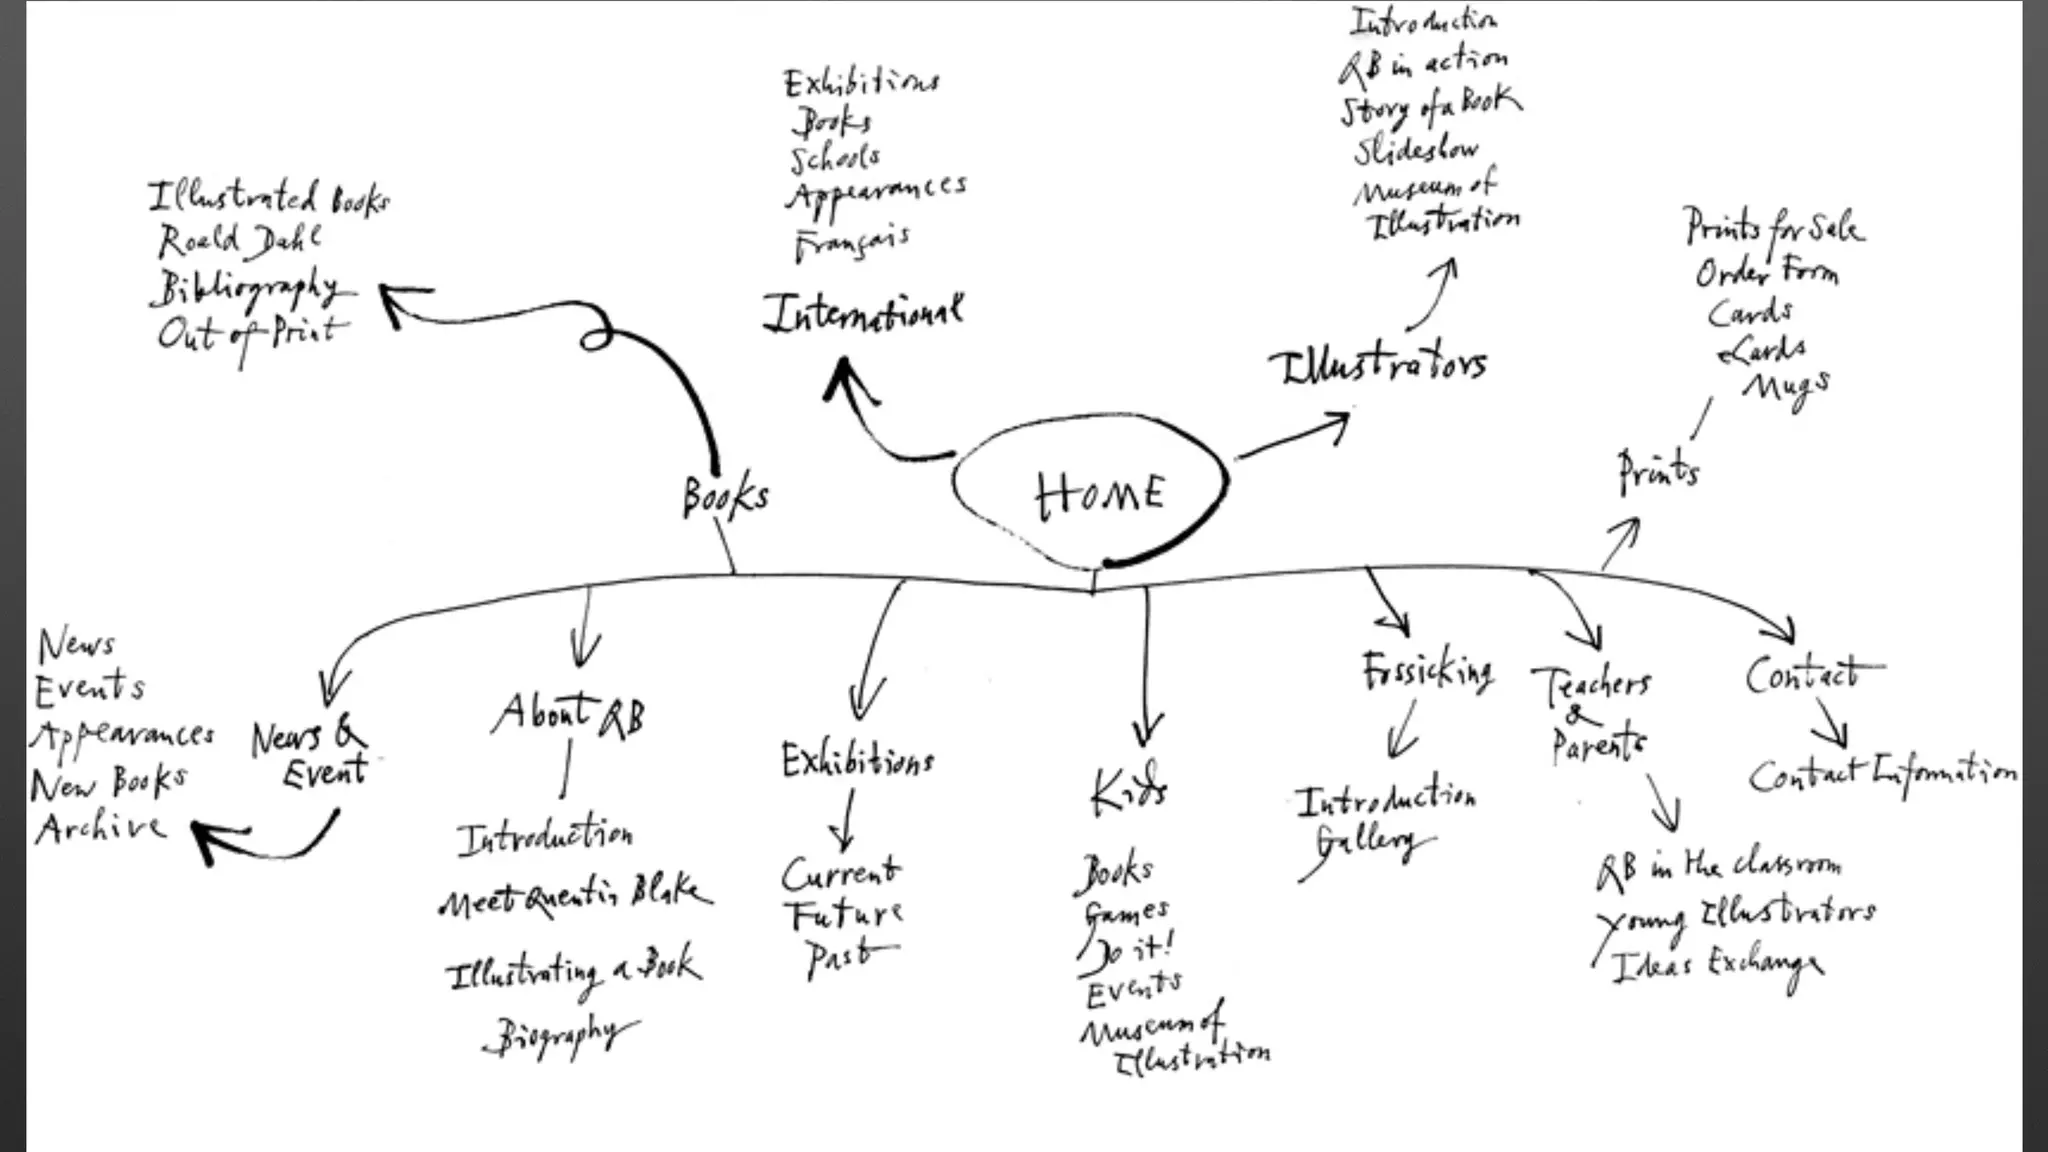 Introduction
QB in action
Story of a Book
Slideshow
Museum of
Illustration
Exhibitions
Books
Schools
Appearances
Français
Illustrated Books
Roald Dahl
Bibliography
Out of Print
Prints for Sale
Order Form
Cards
eCards
Mugs
International
Illustrators
Prints
Books
HOME
News
Events
Appearances
New Books
Archive
News &
Event
About QB
Introduction
Meet Quentin Blake
Illustrating a Book
Biography
Exhibitions
Current
Future
Past
Kids
Books
Games
Do it!
Events
Museum of
Illustration
Fossicking
Introduction
Gallery
Teachers
&
Parents
QB in the classroom
Young Illustrators
Ideas Exchange
Contact
Contact Information